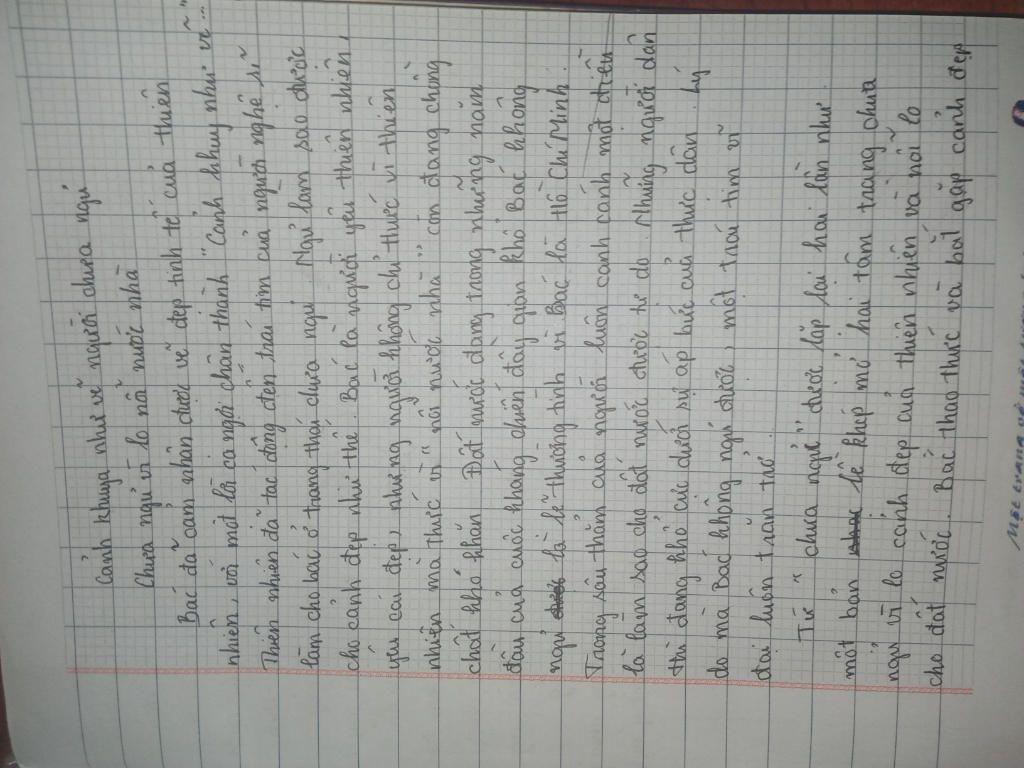 Cảnh khuya như vẽ người chưa ngủ
Chưa ngủ vì lo nỗi nước nhà
Bác đã cảm nhận được vẻ đẹp tinh tế của thiên
nhiên, với một lời ca ngợi chân thành "Cảnh khuya như vẽ"...
Thiên nhiên đã tác động đến trái tim của người nghệ sĩ
làm cho bác ở trạng thái chưa ngủ. Ngủ làm sao được
cho cảnh đẹp như thế. Bác là người yêu thiên nhiên,
yêu cái đẹp, nhưng người không chỉ thức vì thiên
nhiên mà thức vì "nỗi nước nhà" còn đang chồng
chất khó khăn. Đất nước đang trong những năm
đầu của cuộc kháng chiến đầy gian khổ Bác không
ngủ là lẽ thường tình vì Bác là Hồ Chí Minh.
Trong sâu thẳm của người luôn canh cánh một điều
là làm sao cho đất nước được tự do. Những người dân
thì đang khổ cực dưới sự áp bức của thực dân. Lý
do mà Bác không ngủ được, một trái tim vĩ
đại luôn trăn trở.
Từ "chưa ngủ" được lặp lại hai lần như
một bản lề khép mở hai tâm trạng chưa
ngủ vì lo cảnh đẹp của thiên nhiên và nỗi lo
cho đất nước. Bác thao thức và bắt gặp cảnh đẹp